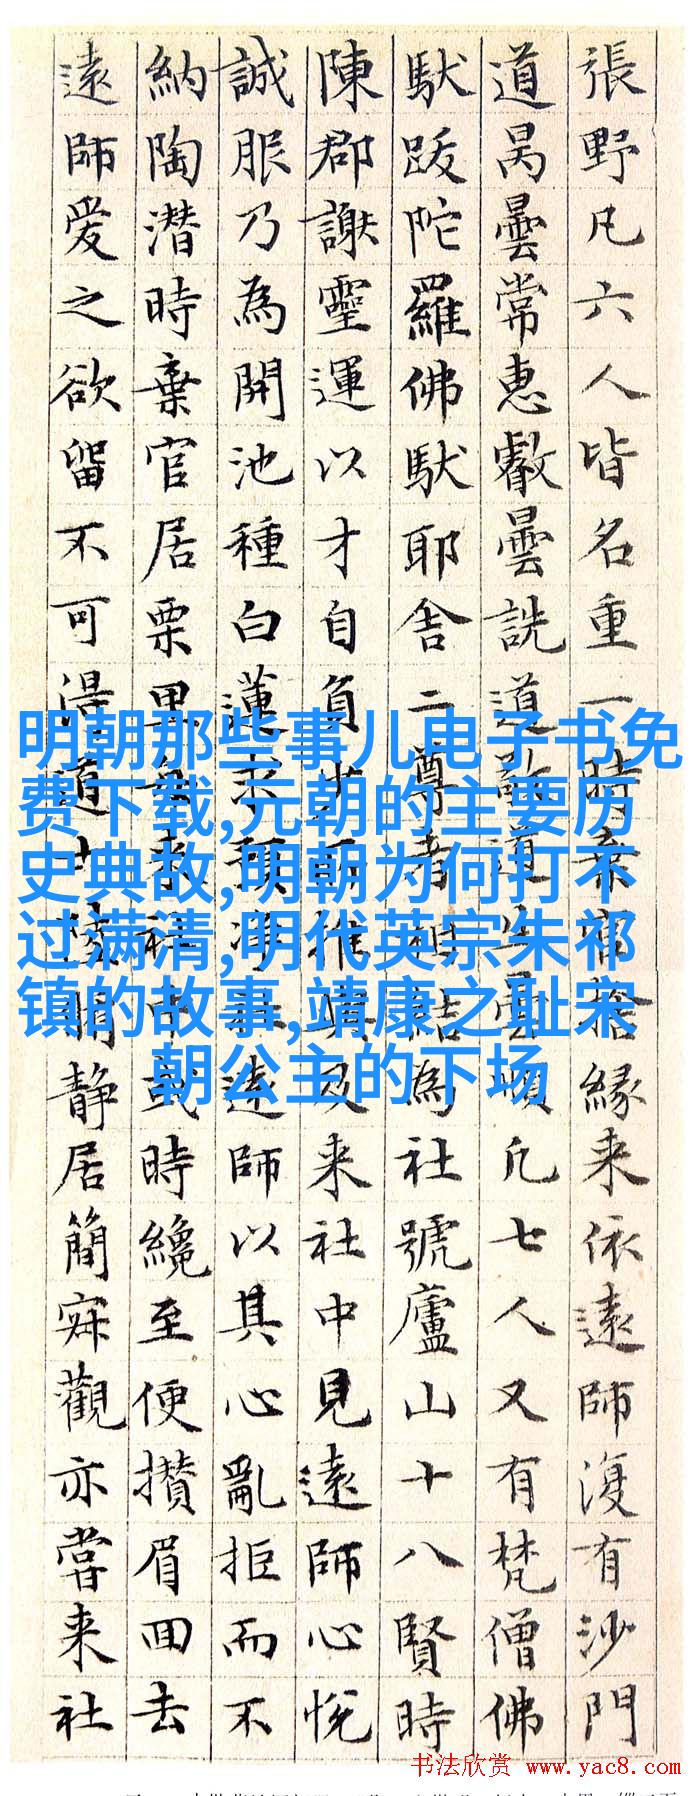 張野凡六人皆名重一時棄宦捨緣来依遠師復有沙門
道昺曇常惠叡曇詵道敬道生曇順凡七人又有梵僧佛
馱跋陀羅佛馱耶舍二尊者相結為社號廬山十八賢時
陳郡謝靈運以才自負少所推與及来社中見遠師心悅
誠服乃為開池種白蓮求預淨社遠師以其心亂拒而不
納陶潛時棄官居栗里每来社中或時纔至便攢眉回去
遠師愛之欲留不可得道士陸脩静居簡寂觀亦嘗来社
明朝那些事儿电子书免
费下载,元朝的主要历
史典故,明朝为何打不
过满清,明代英宗朱祁
镇的故事,靖康之耻宋
朝公主的下场
书法欣赏 www.yac8.com